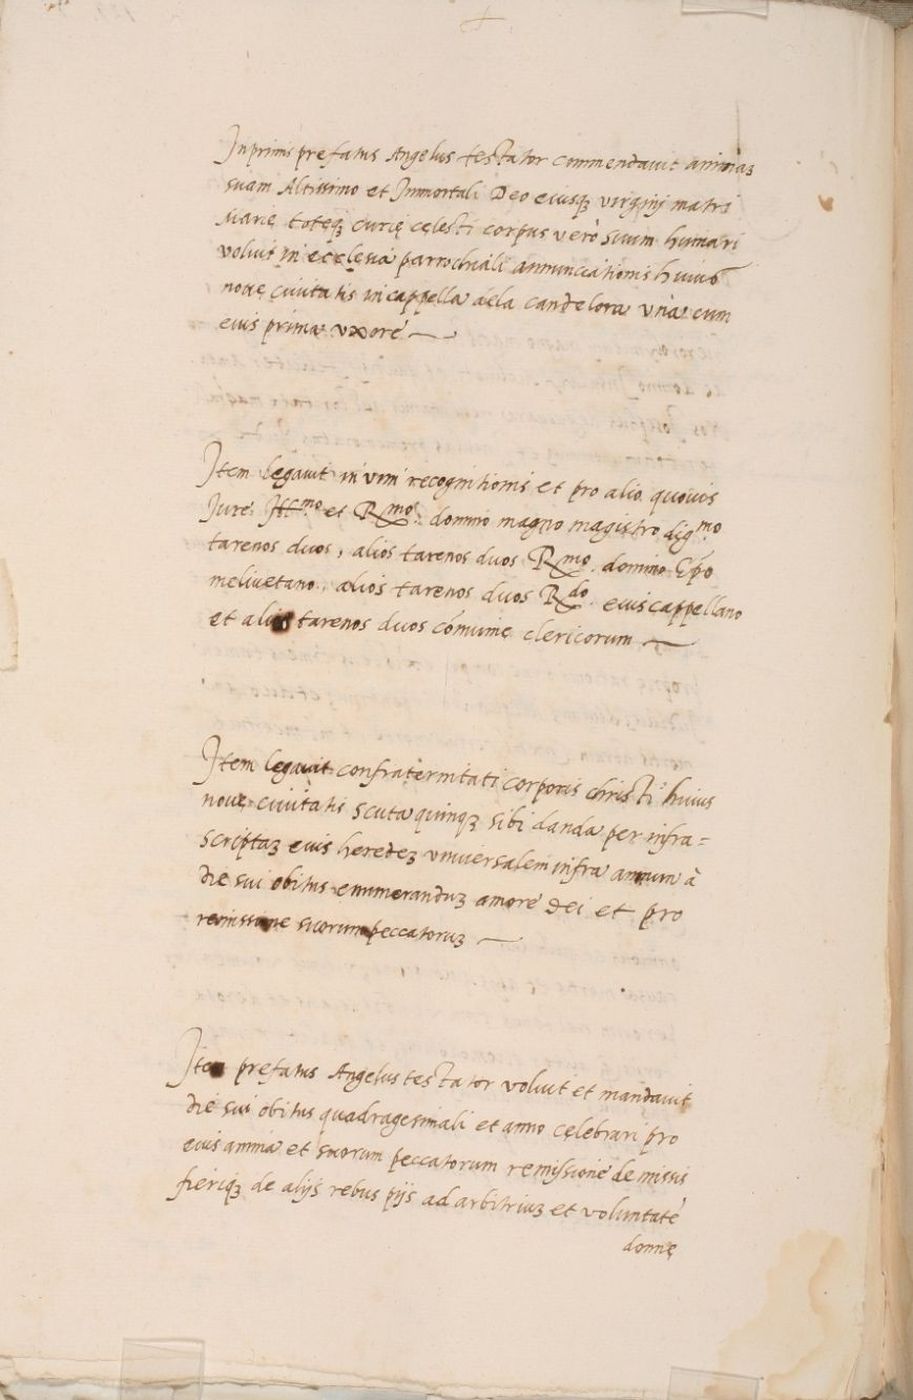 Inprimis prefatus Angelus testator commendauit animaȝ
suam Altissimo et Immortali Deo eiusqȝ virginj matri
Marię totęqȝ curię cęlesti corpus verò suum humari
voluit in ecclesia parrochiali annunciationis huius
nouę ciuitatis in cappella dela candelora vna cum
eius prima vxore
Item legauit in vim recognitionis et pro alio quouis
Jure Illmo et Rmo domino magno magistro digmo
tarenos duos, alios tarenos duos Rmo. domino Epo
meliuetano, alios tarenos duos Rdo. eius cappellano
et alios tarenos duos cómuine clericorum
Item legauit confraternitati corporis christi huius
nouę ciuitatis scuta quinqȝ sibi danda per infra=
scriptaȝ eius heredeȝ vniuersalem infra annum à
die sui obitus enumeranduȝ amore dei et pro
remissione suorum peccatoruȝ
Item prefatus Angelus testator voluit et mandauit
die sui obitus quadragesimali et anno cęlebrari pro
eius anima et suorum peccatorum remissione de missis
fieriqȝ de alijs rebus pijs ad arbitriuȝ et voluntatē
donnę